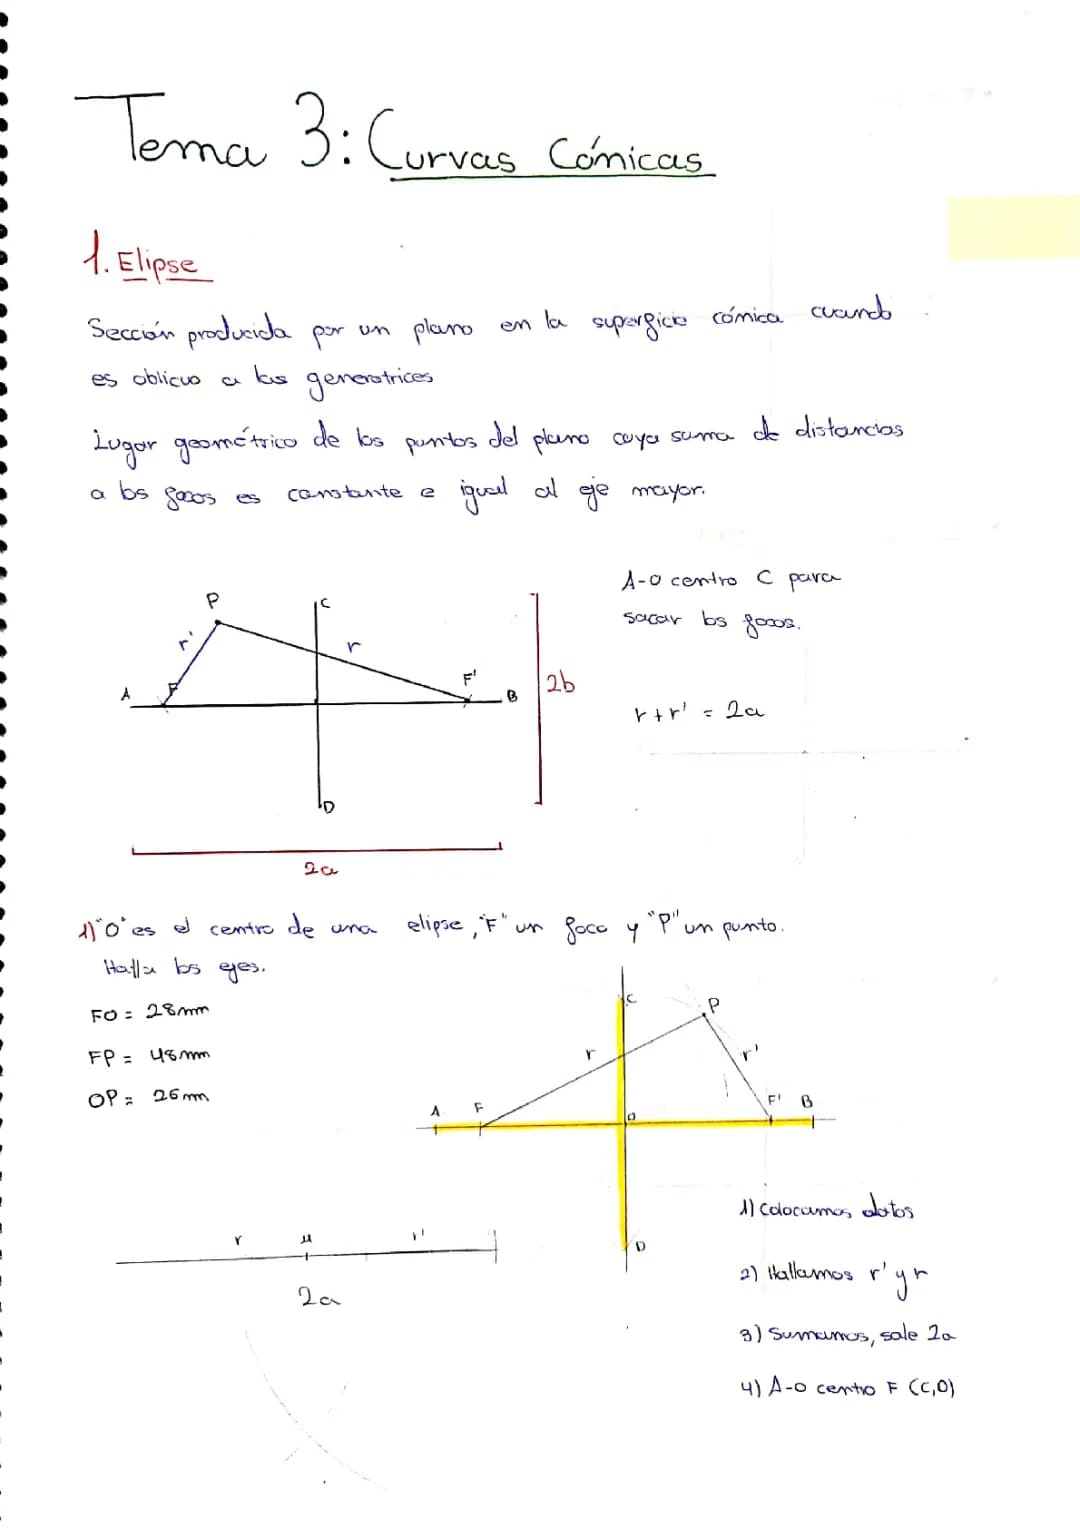 Tema 3: Curvas Cónicas
1. Elipse
Sección producida por un plano en la superficie cónica cuando
es oblicuo a las generatrices
Lugar geométrico de los puntos del plano cuya suma de distancias
a los focos es constante e igual al eje mayor.
A-O centro C para
sacar los focos.
P
C
r'
r
A
F
F'
B
2b
r+r' = 2a
D
2a
1) "O" es el centro de una elipse, "F" un foco y "P" un punto.
Halla los ejes.
FO = 28mm
FP = 48mm
OP = 26mm
C
P
r
r'
A
F
O
F'
B
D
r
r'
2a
1) Colocamos datos
2) Hallamos r' y r
3) Sumamos, sale 2a
4) A-O centro F (C,D)